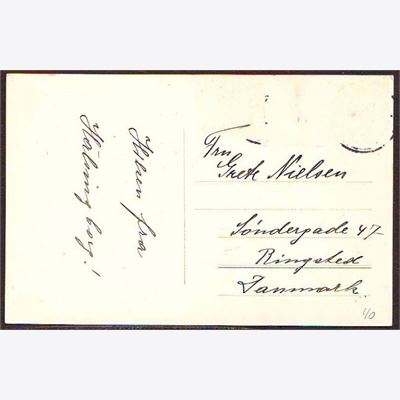 Hilsen fra
Helsingborg!
Fru
Grete Nielsen
Søndergade 47
Ringsted
Danmark.
1/0